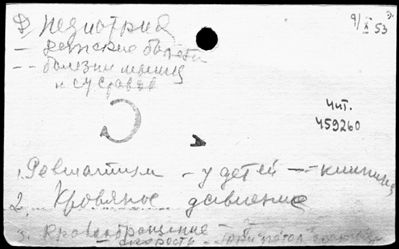 Педиатрия
9/X 53
— детские болезни
-- болезни мышц
и суставов
Чит.
459260
1. Ревматизм - у детей -- клиника
2. Кровяное давление
3. Кровообращение -
скорость -